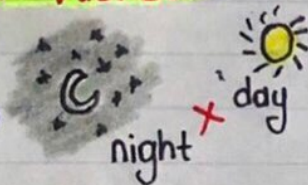 night × day